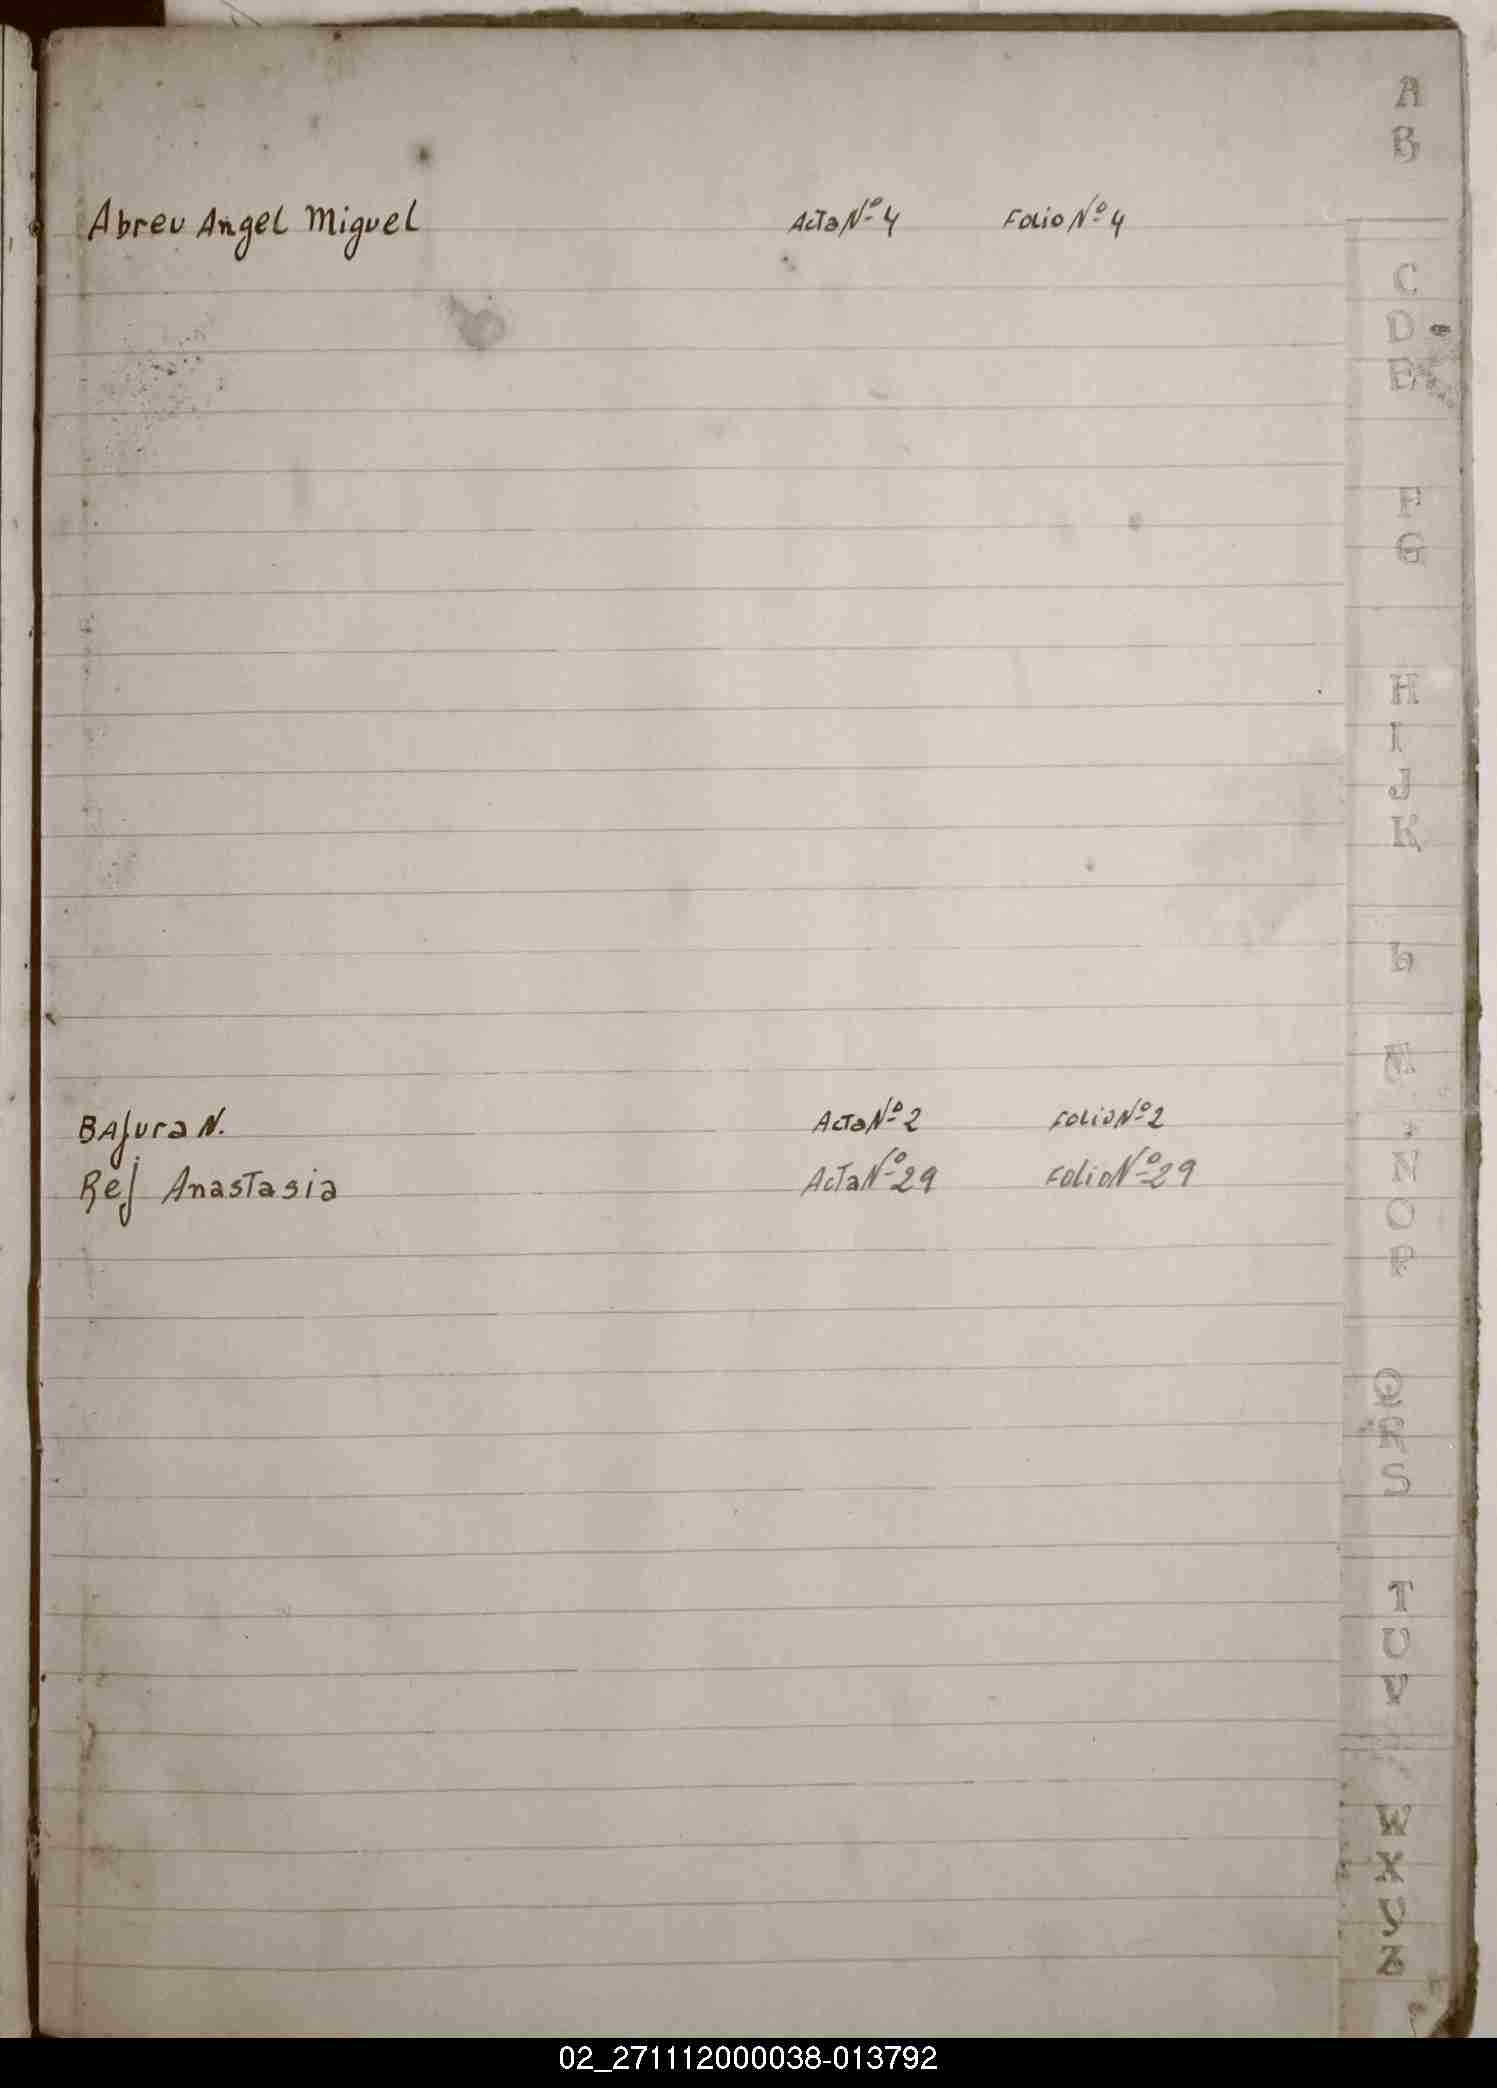 A
B
Abreu Angel Miguel Acta Nº 4 Folio Nº 4
C
D
E
F
G
H
I
J
K
L
Bajura N. Acta Nº 2 Folio Nº 2
Bej Anastasia Acta Nº 29 Folio Nº 29
N
O
P
Q
R
S
T
U
V
W
X
Y
Z
02_271112000038-013792